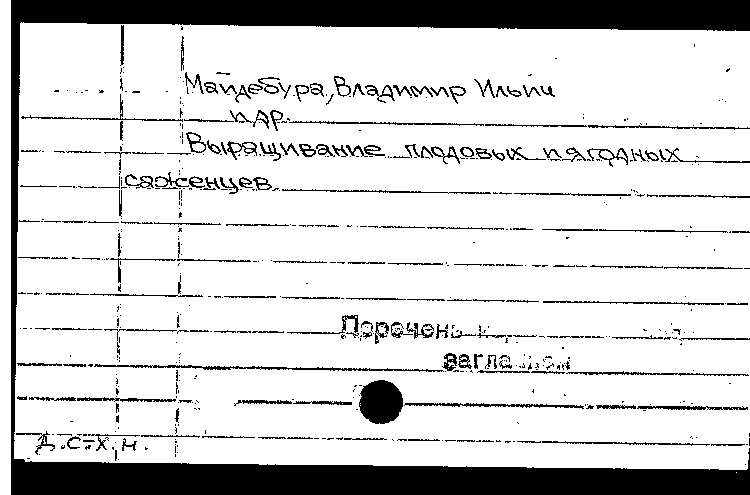 Майдебура, Владимир Ильич
и др.
Выращивание плодовых и ягодных
саженцев
Перечень
Д.С-Х.Н.